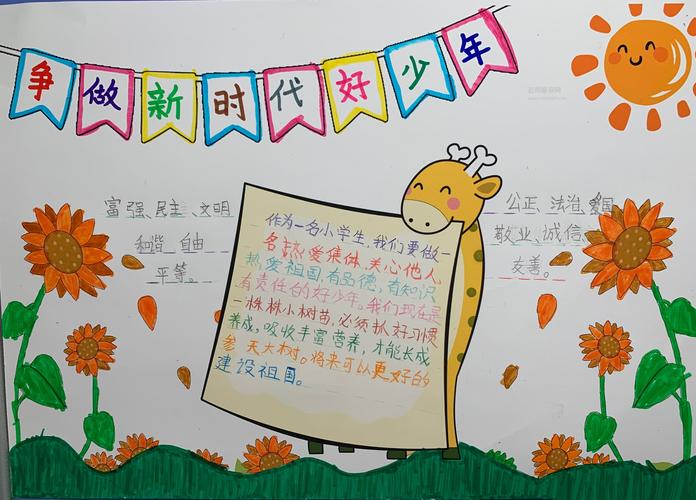 争做新时代好少年
富强、民主、文明
和谐 自由
平等。
作为一名小学生,我们要做一
名热爱集体,关心他人,
热爱祖国,有品德,有知识
有责任的好少年。我们现在是
一株株小树苗,必须抓好习惯
养成,吸收丰富营养,才能长成
参天大树。将来可以更好的
建设祖国。
公正、法治、爱国
敬业、诚信、
友善。